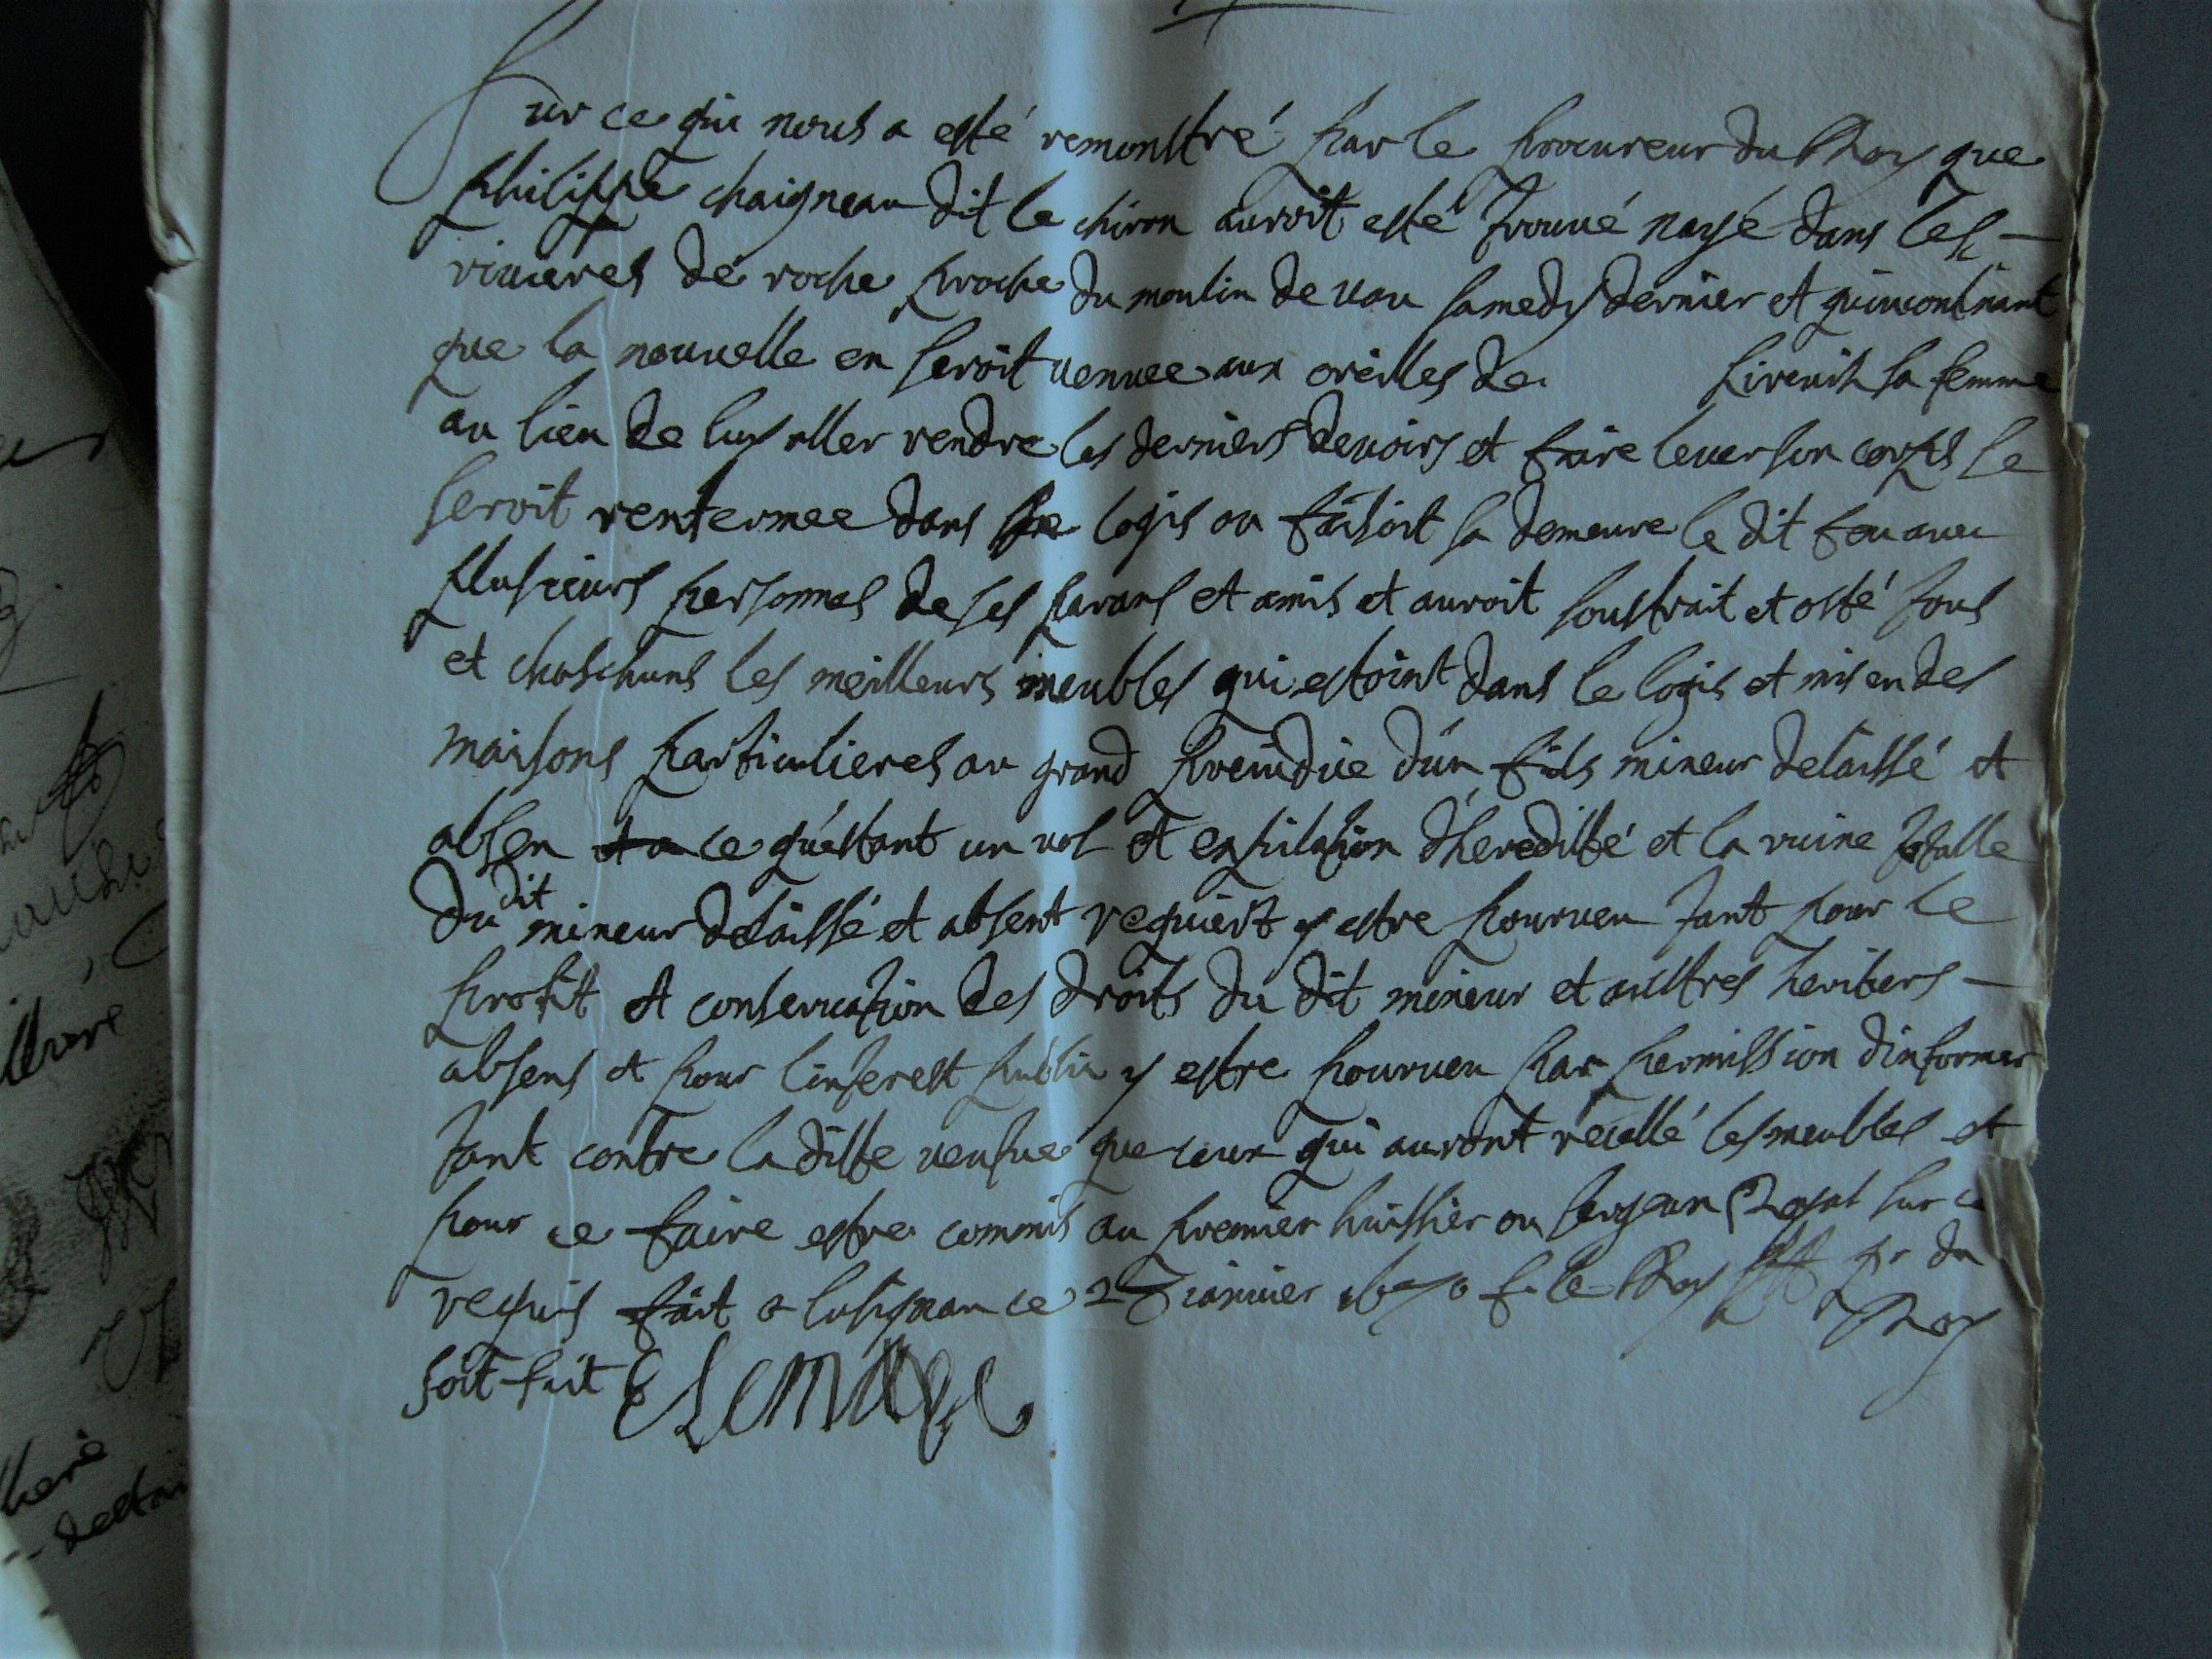 Sur ce qui nous a esté remonstré par le procureur du Roy que
Philippe chaigneau dit le chiron auroit esté trouvé noyé dans les
rivieres de roche proche du moulin de vau samedy dernier et quincontinant
que la nouvelle en seroit venuee aux oreilles de sa femme
au lieu de luy aller rendre les derniers devoirs et faire lever son corps se
seroit renfermee dans logis ou faisoit sa demeure le dit feu avec
plusieurs personnes de ses parans et amis et auroit soustrait et osté tous
et chaschuns les meilleurs meubles qui estoint dans le logis et mis en des
maisons particulieres au grand preiudice d'un fils mineur delaissé et
absen et a ce qu'estant un vol et expilation d'heredité et la ruine totalle
du dit mineur delaissé et absent requiert y estre pourveu tant pour le
profit et conservation des droits du dit mineur et aultres heritiers
absens et pour linterest public y estre pourveu par permission dinformer
tant contre la ditte veufve que ceux qui auront recellé les meubles et
pour ce faire estre commis au premier huissier ou sergean Royal sur ce
requis fait a lusignan ce 27 ianvier 1670 f. le Roy pr du
Roy
soit fait